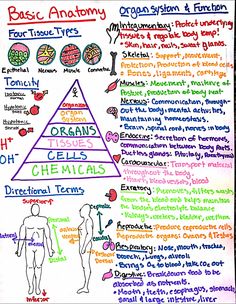 Basic Anatomy
Four Tissue Types
Epithelial Nervous Muscle Connective
Tonicity
Isotonic
Hypertonic
Hypotonic
H+
OH-
Organism
Organ
System
ORGANS
TISSUES
CELLS
CHEMICALS
Directional Terms
Superior
Inferior
Organ System & Function
Integumentary: Protect underlying
tissues & regulate body temp!
• Skin, hair, nails, sweat glands.
Skeletal: Support, movement,
Protection, Production of blood cells
• Bones, ligaments, cartilage
Muscles: Movement, maintenance of
Posture, production of body heat
Nervous: Communication, throughout
out the body; mental activities,
maintaining homeostasis.
• Brain, spinal cord, nerves in body
Endocrine: Secretion of hormones
communication between body parts
Cardiovascular: Transport material
throughout the body.
• Heart, blood vessels, blood
Excretory: Removes, filters waste
from the blood and helps maintain
• Kidneys, bladder, urethra
Reproductive: Produce reproductive cells
Respiratory: Nose, mouth, trachea,
bronchi, lungs, alveoli
Digestive: Breakdown food to be
absorbed as nutrients.
• Mouth, teeth, esophagus, stomach,
small & large intestine, liver